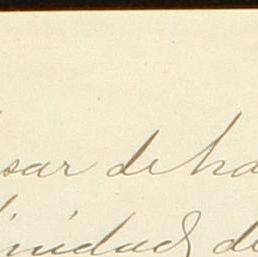 sar de ha
inidad de